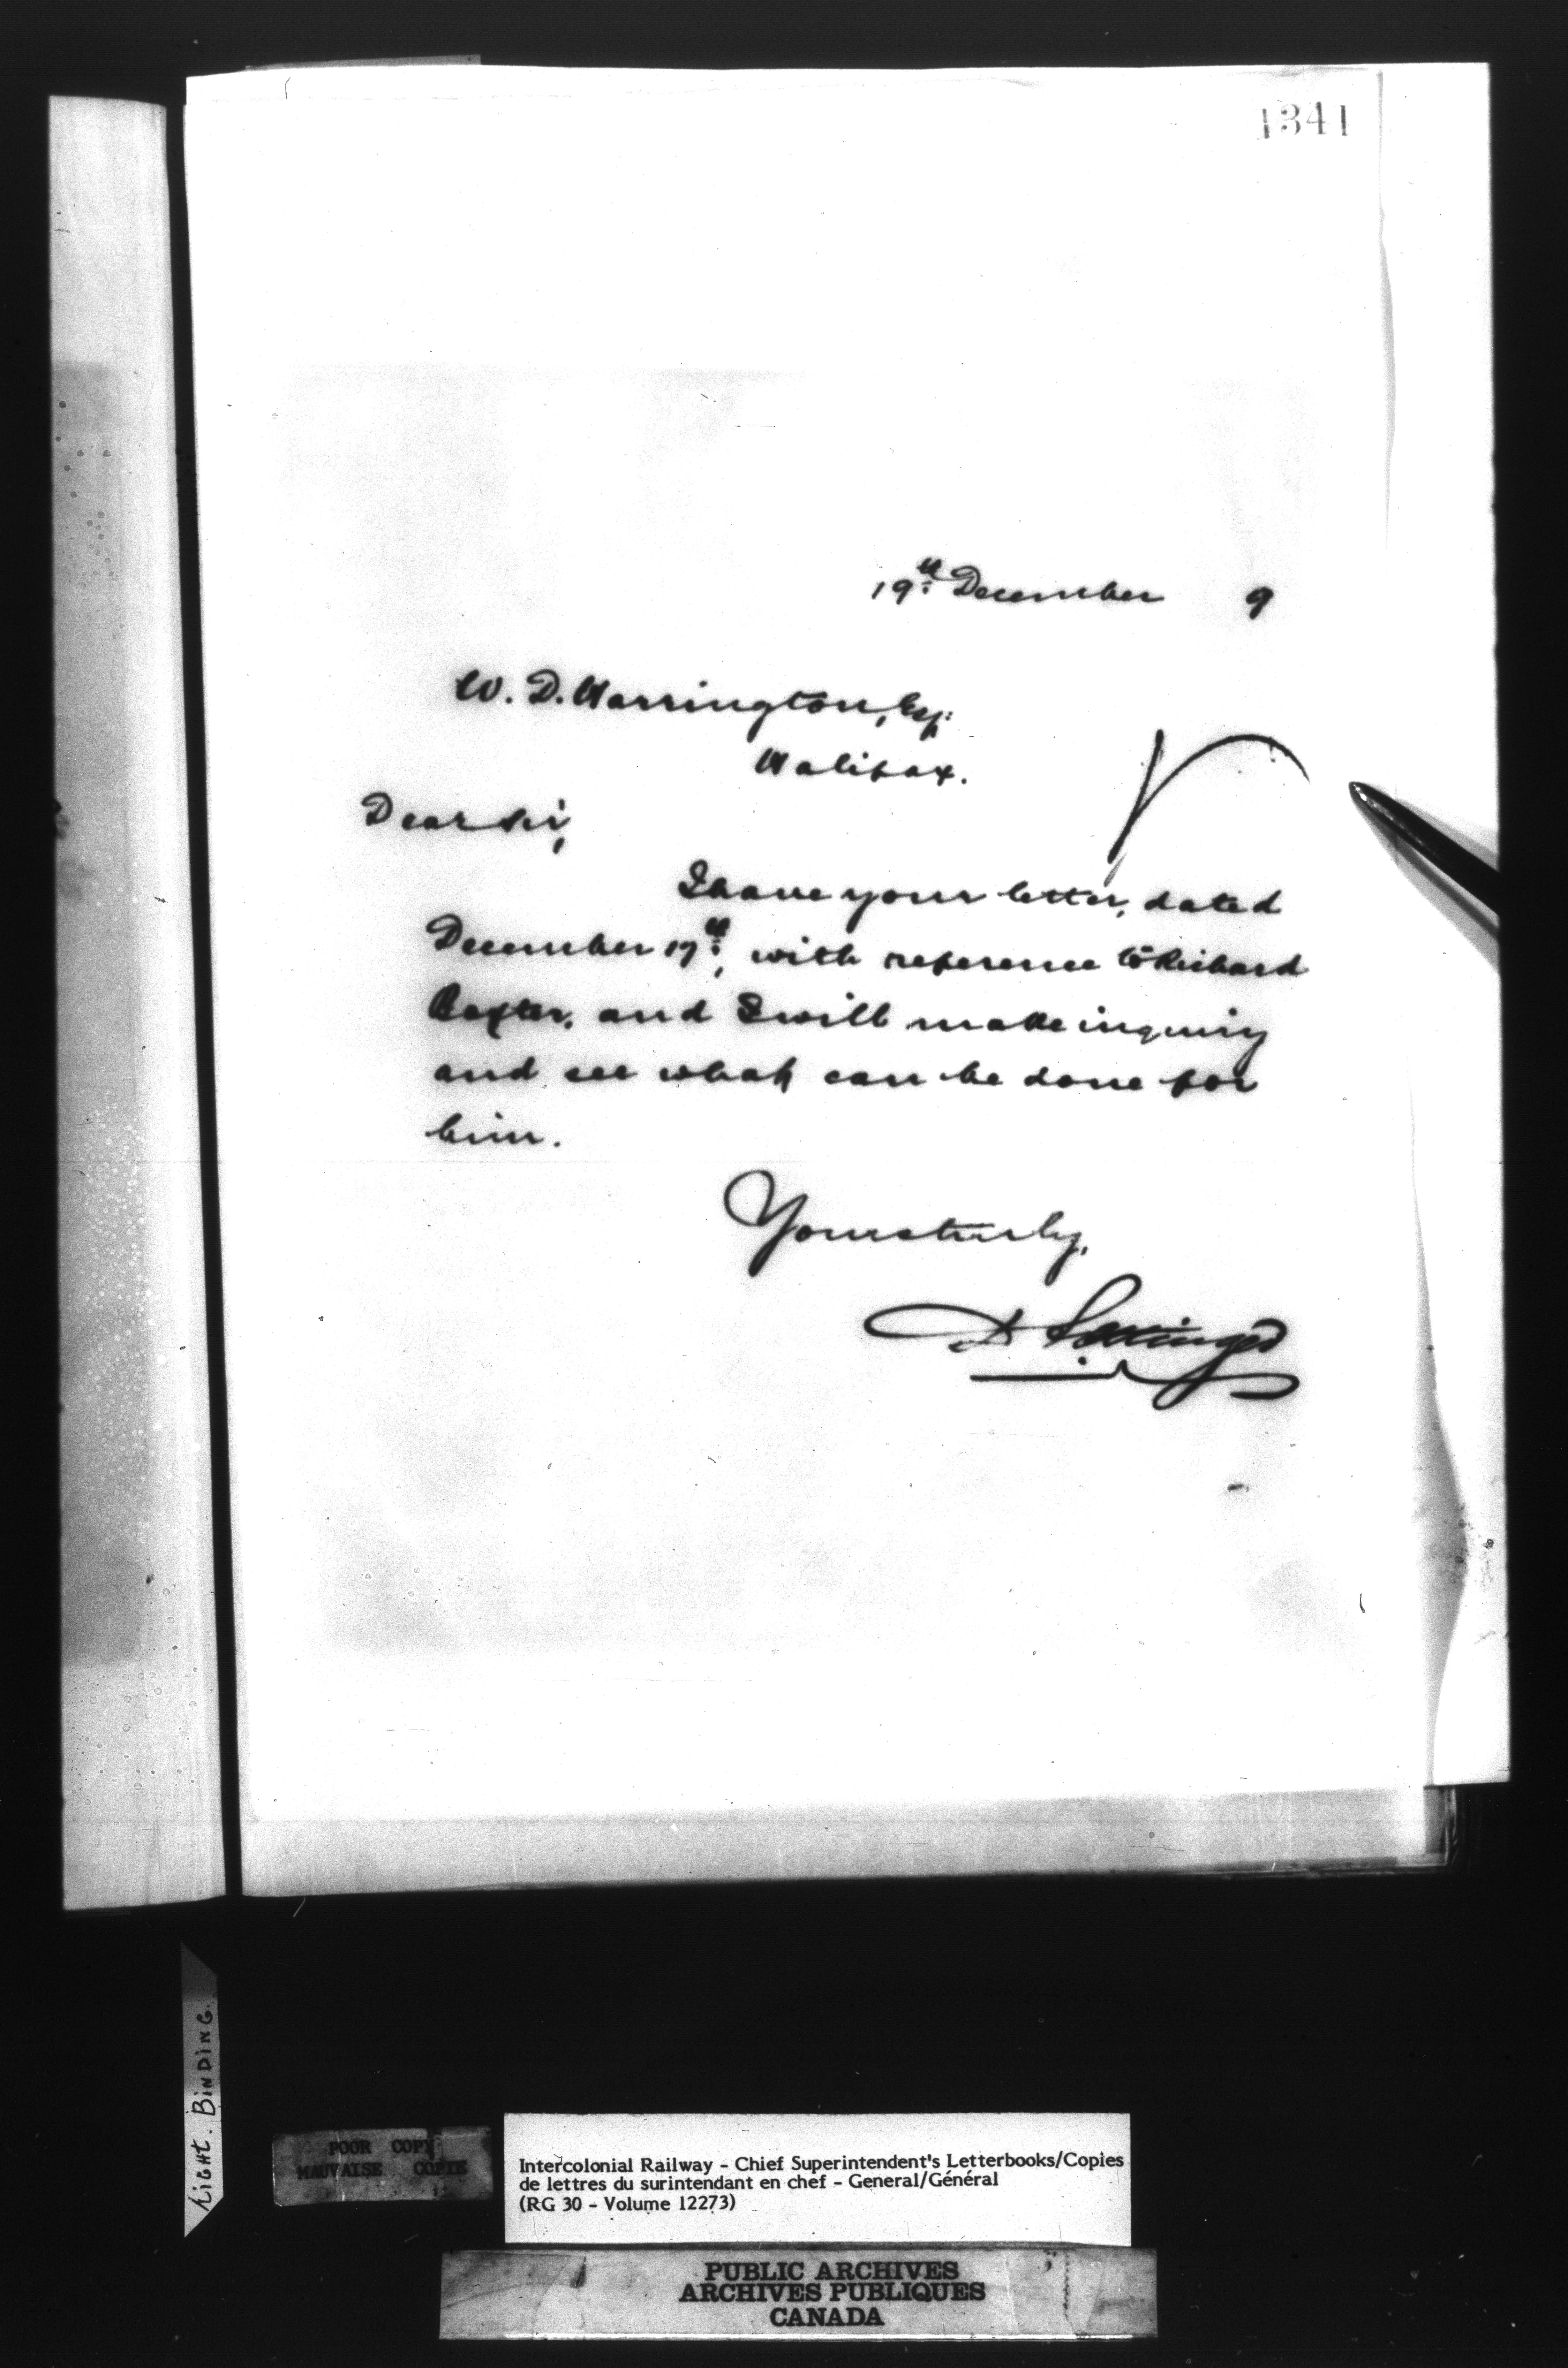 1341
19th December 9
W. D. Harrington, Esq:
Halifax.
Dear Sir,
I have your letter, dated
December 17th, with reference to Richard
Baxter, and I will make inquiry
and see what can be done for
him.
Yours truly,
D Pottinger
TIGHT. BINDING.
POOR COPY
MAUVAISE COPIE
Intercolonial Railway - Chief Superintendent's Letterbooks/Copies
de lettres du surintendant en chef - General/Général
(RG 30 - Volume 12273)
PUBLIC ARCHIVES
ARCHIVES PUBLIQUES
CANADA